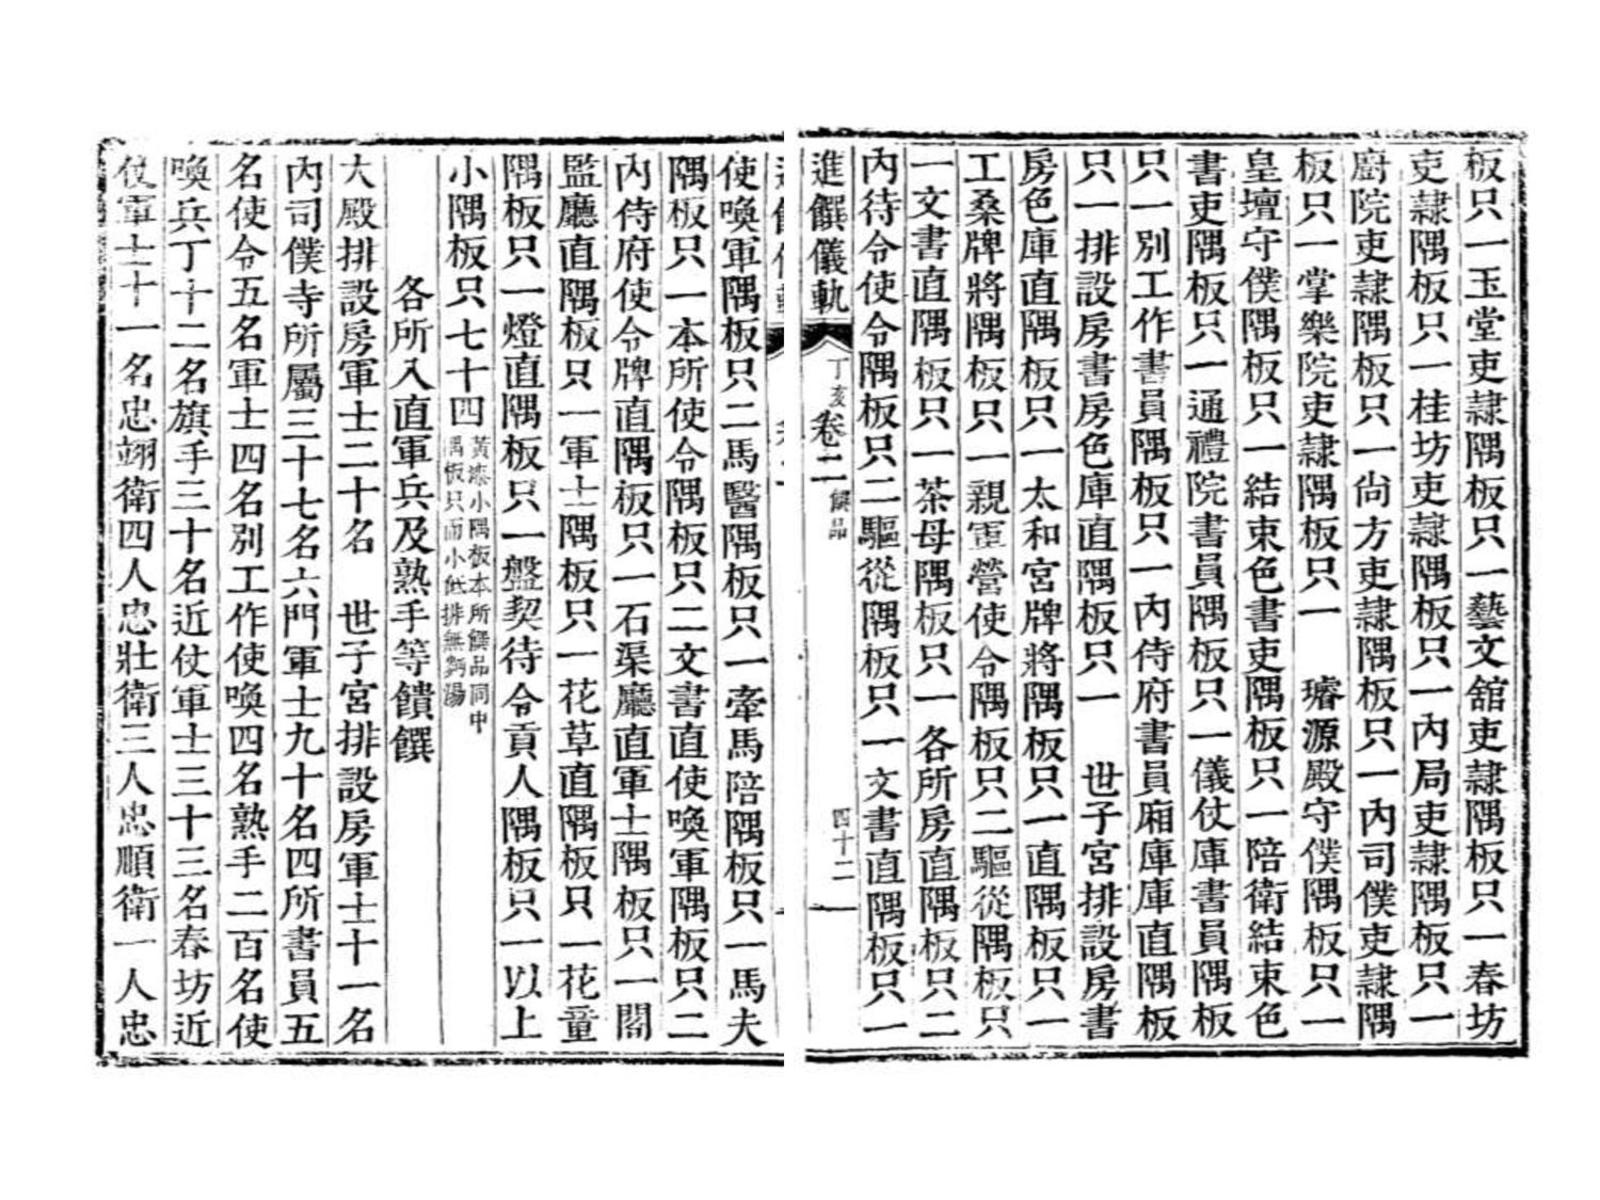 板只一玉堂吏隷隅板只一藝文舘吏隷隅板只一春坊
吏隷隅板只一桂坊吏隷隅板只一內局吏隷隅板只一
廚院吏隷隅板只一尙方吏隷隅板只一內司僕吏隷隅
板只一掌樂院吏隷隅板只一　璿源殿守僕隅板只一
皇壇守僕隅板只一結束色書吏隅板只一陪衛結束色
書吏隅板只一通禮院書員隅板只一儀仗庫書員隅板
只一別工作書員隅板只一內侍府書員廂庫庫直隅板
只一排設房書房色庫直隅板只一　世子宮排設房書
房色庫直隅板只一太和宮牌將隅板只一直隅板只一
工桑牌將隅板只一親軍營使令隅板只二驅從隅板只
一文書直隅板只一茶母隅板只一各所房直隅板只二
內待令使令隅板只二驅從隅板只一文書直隅板只一
進饌儀軌　丁亥　卷二　饌品　四十二
使喚軍隅板只二馬醫隅板只一牽馬陪隅板只一馬夫
隅板只一本所使令隅板只二文書直使喚軍隅板只二
內侍府使令牌直隅板只一石渠廳直軍士隅板只一閣
監廳直隅板只一軍士隅板只一花草直隅板只一花童
隅板只一燈直隅板只一盤契待令貢人隅板只一以上
小隅板只七十四黃漆小隅板本所饌品同中
隅板只而小低排無麪湯
各所入直軍兵及熟手等饋饌
大殿排設房軍士二十名　世子宮排設房軍士十一名
內司僕寺所屬三十七名六門軍士九十名四所書員五
名使令五名軍士四名別工作使喚四名熟手二百名使
喚兵丁十二名旗手三十名近仗軍士三十三名春坊近
仗軍士十一名忠翊衛四人忠壯衛三人忠順衛一人忠